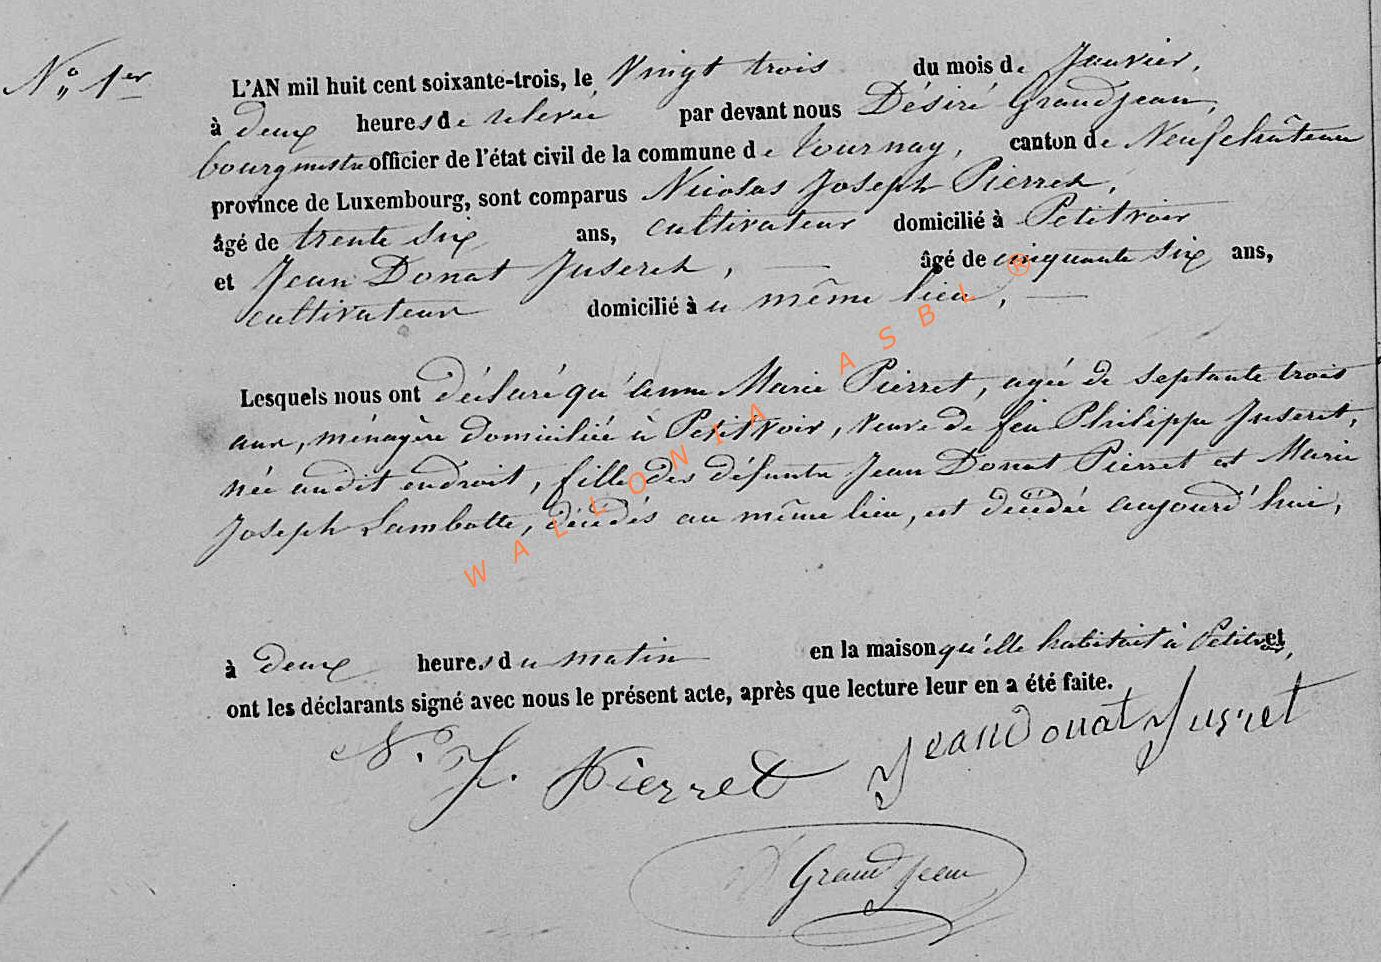 N° 1er
L'AN mil huit cent soixante-trois, le Vingt trois du mois de Janvier,
à deux heures de relevée par devant nous Désiré Grandjean,
bourgmestre officier de l'état civil de la commune de Tournay, canton de Neufchâteau
province de Luxembourg, sont comparus Nicolas Joseph Pierret,
âgé de trente six ans, cultivateur domicilié à Petitvoir
et Jean Donat Juseret, âgé de cinquante six ans,
cultivateur domicilié à u même lieu,
Lesquels nous ont déclaré qu'Anne Marie Pierret, agée de septante trois
ans, ménagère domiciliée à Petitvoir, veuve de feu Philippe Juseret,
née audit endroit, fille des défunts Jean Donat Pierret et Marie
Joseph Lambotte, décédés au même lieu, est décédée aujourd'hui,
à deux heures du matin en la maison qu'elle habitait à Petitvoir, et
ont les déclarants signé avec nous le présent acte, après que lecture leur en a été faite.
N. J. Pierret Jean Donat Jusret
D Grandjean
WALLONIA ASBL ®